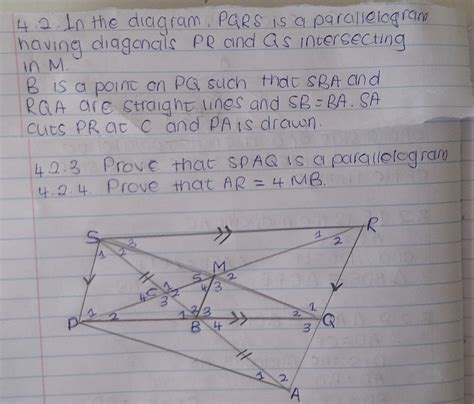 4.2. In the diagram, PQRS is a parallelogram
having diagonals PR and QS intersecting
in M.
B is a point on PQ such that SBA and
RQA are straight lines and SB = BA. SA
cuts PR at C and PA is drawn.
4.2.3 Prove that SPAQ is a parallelogram
4.2.4. Prove that AR = 4 MB.
S 3 1 R
1 2 2
M
5 2
C 2 4 3
4 3
1 2 3 2 1
P 2 1 B 4 3 Q
1 2
A